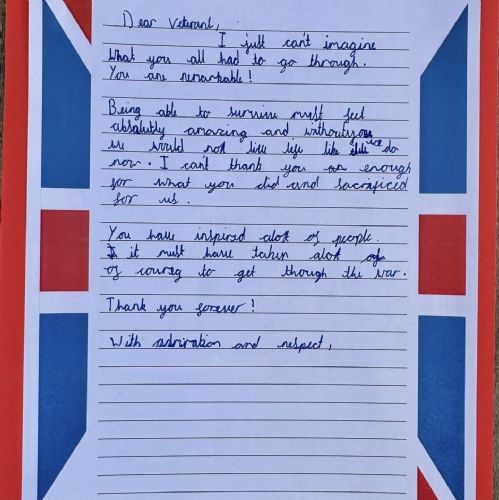 Dear Veterant,
I just can't imagine
What you all had to go through.
You are remarkable!
Being able to survive must feel
absalutly amazing and without you
we would not live life like we do
now. I can't thank you enough
for what you did and sacraficed
for us.
You have inspired alot of people.
it must have taken alot
of courag to get though the war.
Thank you forever!
With admiration and respect,